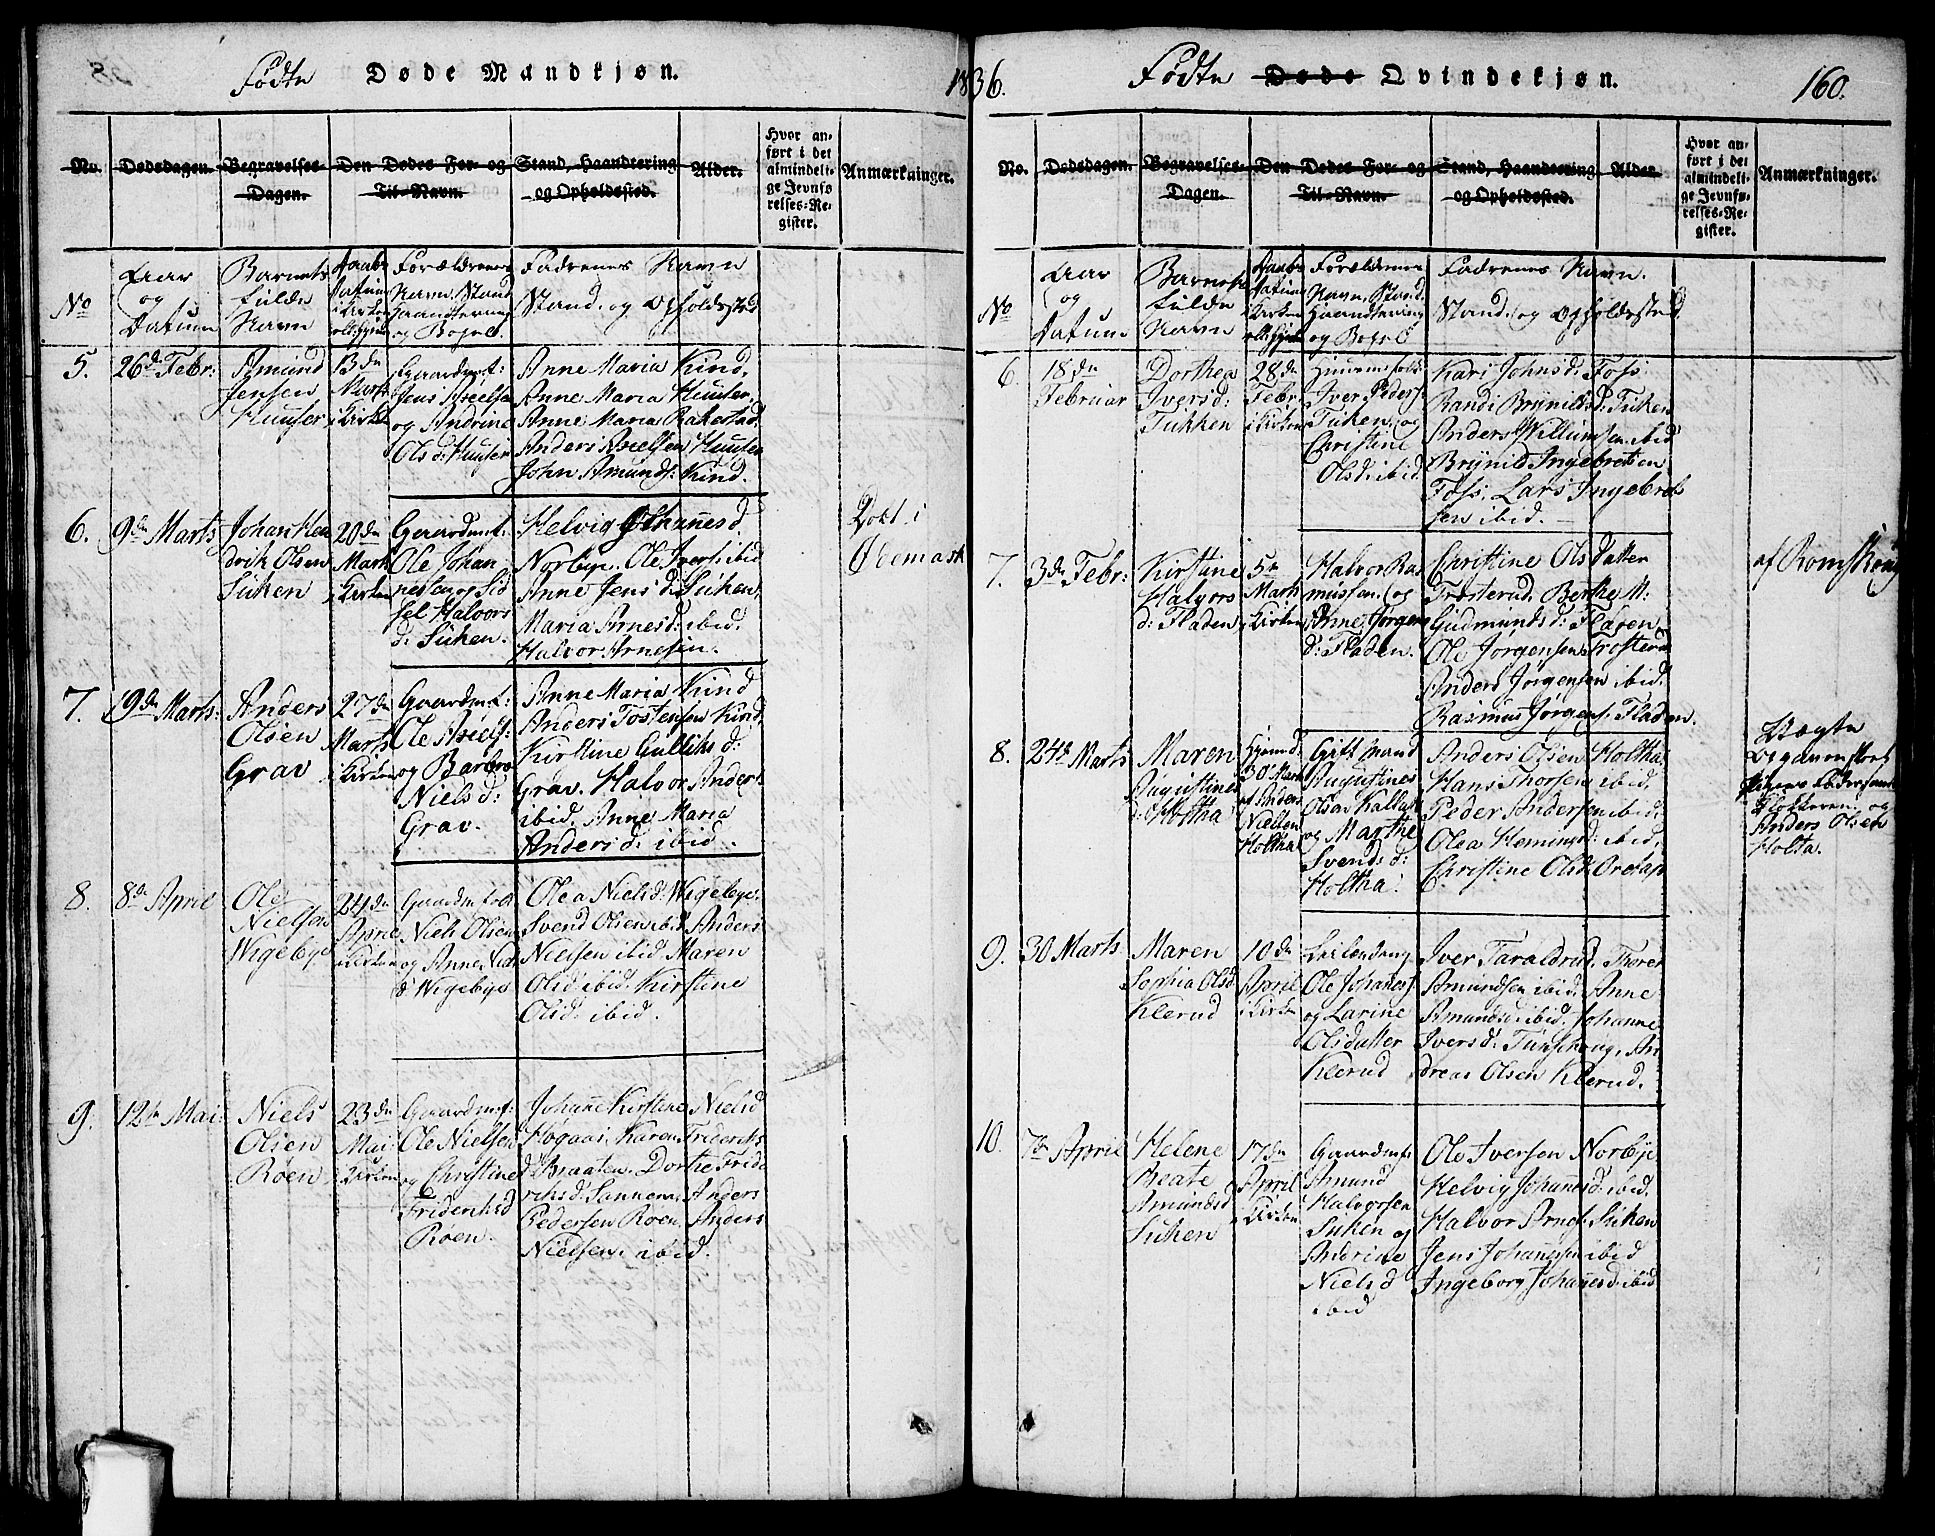 Fødte Døde Mandkjøn.
1836.
No. Dødsdagen. Begravelses-Dagen. Den Dødes For- og Til-Navn. Stand, Haandtering og Opholdssted. Alder. Hvor anført i det almindelige Jevnførelses-Register. Anmærkninger.
No
Aar og Datum
Barnets fulde Navn
Daabs Datum i Kirken
Forældrenes Navn, Stand Haandtering og Bopæl.
Fadrenes Navn
Stand og Opholdssted
5. 26de Febr:
Amund
Jensen
Huuser
13de
Marts
i Kirken
Gaardmf:
Jens Axelsen
og Andrine
Olsd: Huuser
Anne Maria Kind,
Anne Maria Huuser,
Anne Maria Rakestad
Anders Axelsen Huuser
John Amunds: Kind.
6. 9de Marts
Johan Hen
drik Olsen
Suken
20de
Marts
i Kirken
Gaardmf:
Ole Johan
nesen og Sid
sel Halvors
d: Suken.
Helvig Johannesd
Norbye. Ole Ivers: ibid
Anne Jensd: Suken,
Maria Arnesd: ibid.
Halvor Arnesen.
Døbt i
Ødemark
7. 19de Marts:
Anders
Olsen
Grav
27de
Marts
i Kirken
Gaardmf:
Ole Axels:
og Barbro
Nielsd:
Grav.
Anne Maria Kind
Anders Tostensen Kind,
Kirstine Gulliksd:
Grav. Halvor Anders
ibid. Anne Maria
Andersd: ibid.
8. 8de April
Ole
Nielsen
Wigebye
24de
April
i Kirken
Niels Olsen
og Anne Niels
d: Wigebye
Olea Nielsd: Wigebye.
Svend Olsen ibid Anders
Nielsen ibid Maren
Olsd: ibid. Kirstine
Olsd: ibid.
9. 12te Mai:
Niels
Olsen
Røen
23de
Mai
i Kirken
Gaardmf:
Ole Nielsen
og Christine
Friderichsd
Røen.
Johanne Kirstine Nielsd
Høgaas, Karen Frideriks
d: Braaten. Dorthe Fride
richsd: Sannerne, Anders
Pedersen Røen, Anders
Nielsen ibid.
Fødte Døde Qvindekjøn.
160.
No. Dødsdagen. Begravelses-Dagen. Den Dødes For- og Til-Navn. Stand, Haandtering og Opholdssted. Alder. Hvor anført i det almindelige Jevnførelses-Register. Anmærkninger.
No
Aar og Datum
Barnets fulde Navn
Daabs Datum i Kirken
Forældrenes Navn, Stand, Haandtering og Bopæl
Fadrenes Navn.
Stand og Opholdssted
6. 18de
Februar
Dorthea
Iversd:
Tukken
28de
Febr
i Kirken
Iver Peders:
Tuken, og
Christine
Olsd: ibid.
Kari Johnsd: Foss.
Randi Brynildsd: Tuken
Anders Willumsen ibid
Brynild Ingebretsen
Foss. Lars Ingebret
sen ibid.
7. 3de Febr:
Kirstine
Halvors
d: Fladen
5te
Marts
i Kirken
Halvor Ras
mussen og
Anne Jørgens
d: Fladen.
Christine Olsdatter
Trosterud. Berthe M:
Gudmundsd: Flaten
Ole Jørgensen Trosterud
Anders Jørgensen ibid.
Rasmus Jørgens: Fladen.
af Romskoug
8. 24de Marts
Maren
Augustines
d: Holtha
Hjemd.
30 Marts
af Anders
Nielsen
Holtha
Gift Mand
Augustines
Olsen Kallak
og Marthe
Svends d:
Holtha.
Anders Olsen Holtha
Hans Thorsen ibid.
Peder Andersen ibid:
Olea Hemingsd: ibid,
Christine Olsd:
Klokkeren og
Anders Olsen
Holta.
9. 30 Marts
Maren
Sophia Olsd
Klerud
10de
April
i Kirken
Ole Johannes:
og Larine
Olsdatter
Klerud
Iver Taraldrud. Thorer
Amundsen ibid. Anne
Amundsd: ibid. Johanne
Iversd: Tunskoug, An
dreas Olsen Klerud.
10. 7de April
Helene
Beate
Amundsd
Suken
17de
April
i Kirken
Gaardmf:
Amund
Halvorsen
Suken og
Anerine
Nielsd
ibid
Ole Iversen Norbye
Helvig Johannesd: ibid.
Halvor Arnes: Suken
Jens Johannesen ibid
Ingeborg Johannesd: ibid